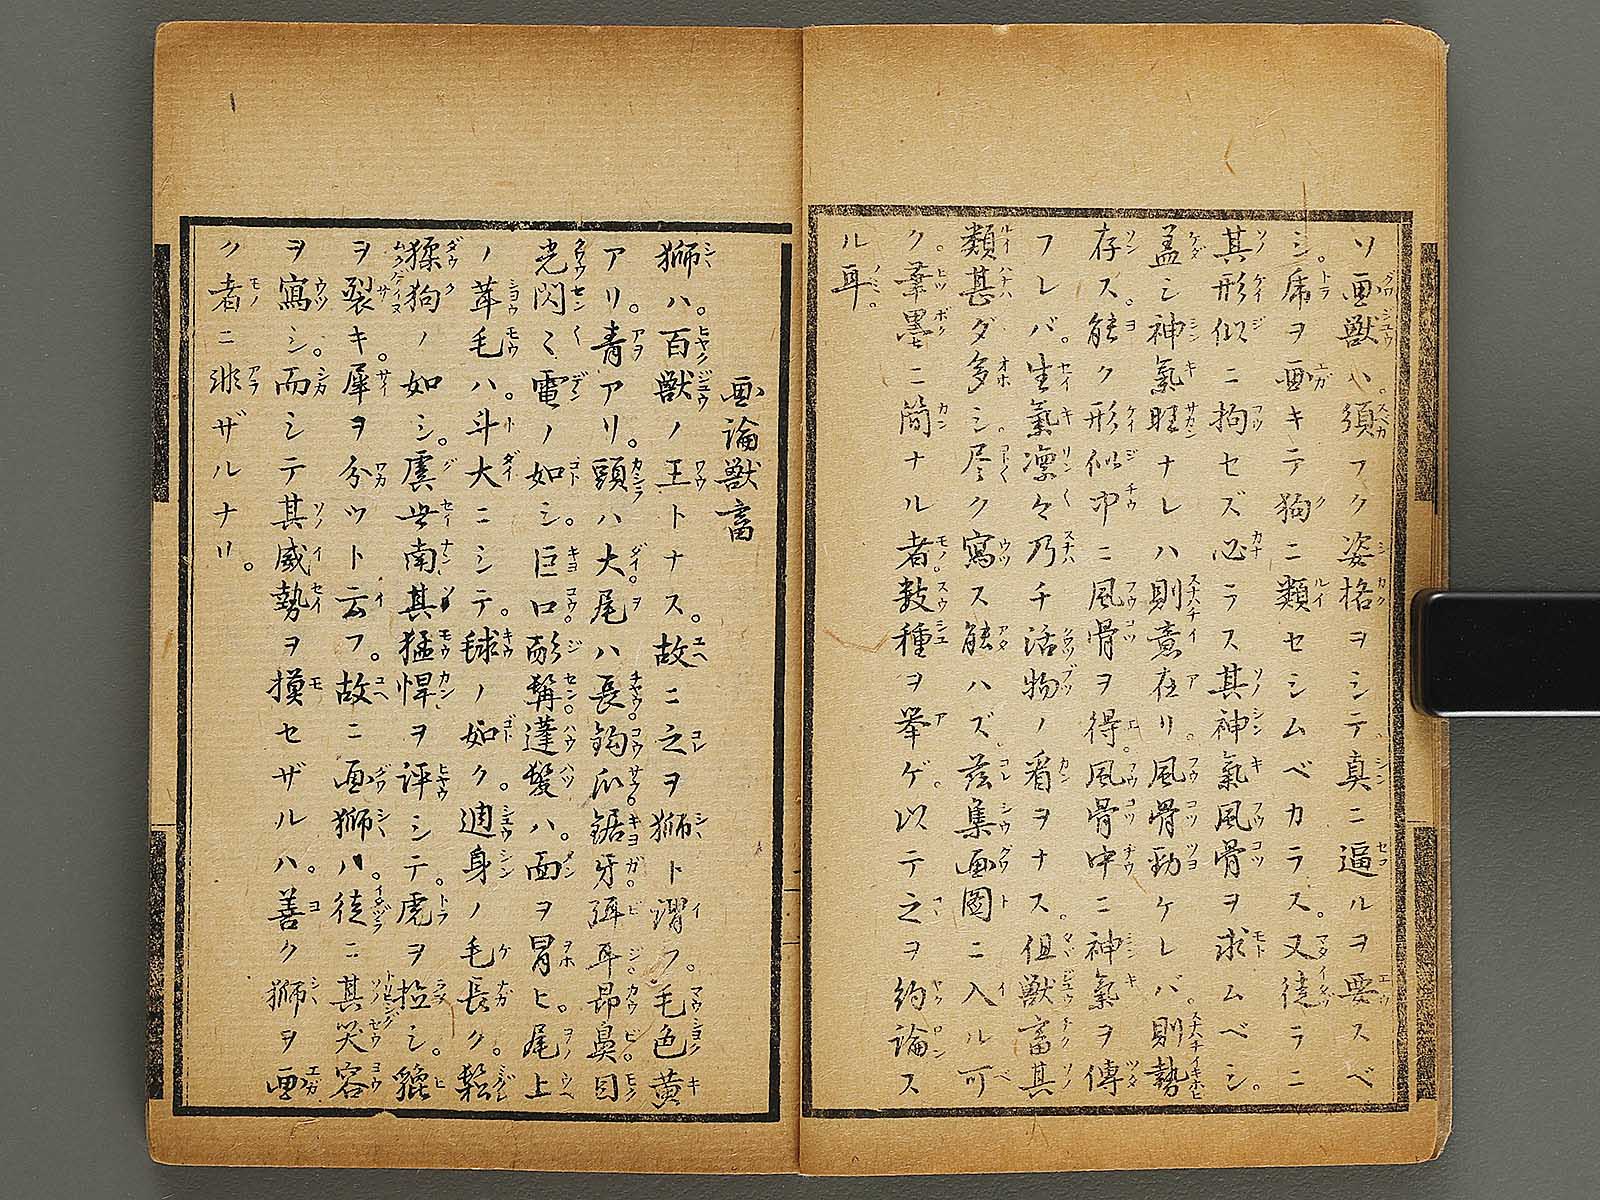 ソ画獣ハ。須ラク姿格ヲシテ真ニ逼ルヲ要スベ
シ。虎ヲ画キテ狗ニ類セシムベカラス。又徒ラニ
其形似ニ拘セズ必ラス其神氣風骨ヲ求ムベシ。
蓋シ神氣旺ナレハ則意在リ。風骨勁ケレバ。則勢
存ス。能ク形似中ニ風骨ヲ得。風骨中ニ神氣ヲ傳
フレバ。生氣凛々乃チ活物ノ看ヲナス。但獣畜其
類甚ダ多シ尽ク寫ス能ハズ茲集画圖ニ入ル可
ク。筆墨ニ簡ナル者。数種ヲ挙ゲ。以テ之ヲ約論ス
ル耳。
画論獣畜
獅ハ。百獣ノ王トナス。故ニ之ヲ獅ト謂フ。毛色黄
アリ。青アリ。頭ハ大。尾ハ長。鈎爪鋸牙。弭耳昂鼻。目
光閃〻電ノ如シ。巨口。耏髯。蓬髪ハ。面ヲ冒ヒ。尾上
ノ茸毛ハ。斗大ニシテ。毬ノ如ク。週身ノ毛長ク。鬆
猱狗ノ如シ。虞世南其猛悍ヲ評シテ。虎ヲ拉シ。貔
ヲ裂キ。犀ヲ分ツト云フ。故ニ画獅ハ。徒ニ其笑容
ヲ寫シ。而シテ其威勢ヲ摸セザルハ。善ク獅ヲ画
ク者ニ非ザルナリ。